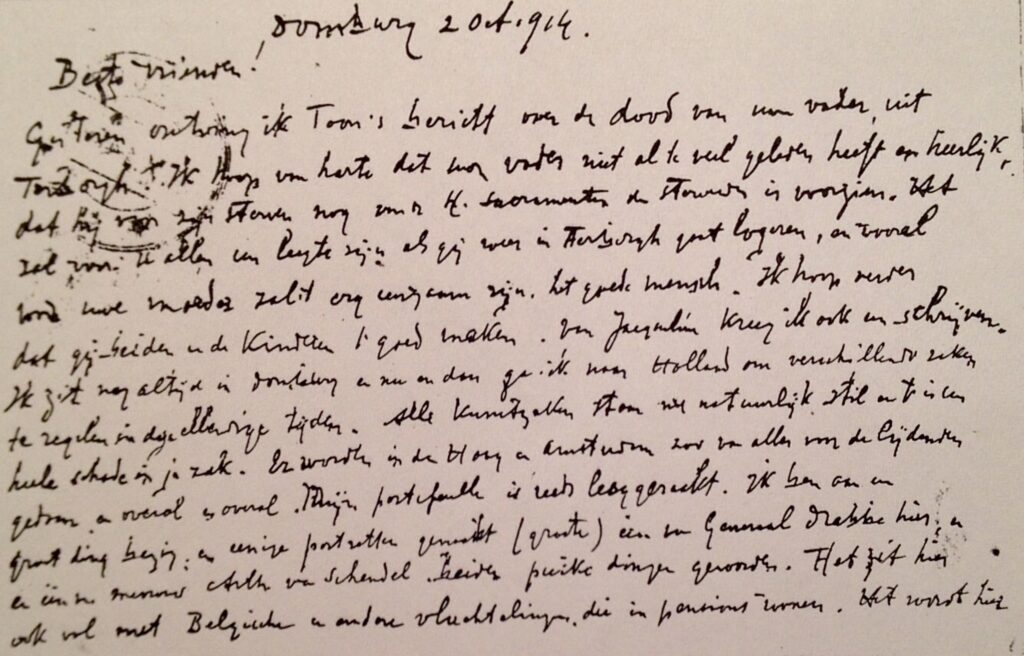 Domburg 2 Oct. 914.
Beste Vrienden!
Gisteren ontving ik Toon's bericht over de dood van uw vader, uit
TerBorgh. Ik hoop van harte dat uw vader niet al te veel geleden heeft en heerlijk,
dat hij voor zijn sterven nog van de H. Sacramenten der stervenden is voorzien. Het
zal voor U allen een leegte zijn als gij weer in TerBorgh gaat logeeren, en vooral
voor uwe moeder zal it erg eenzaam zijn. het goede mensch. Ik hoop verder
dat gij beiden en de Kinderen 't goed maken. Van Jacqueline kreeg ik ook een schrijven.
Ik zit nog altijd in Domburg en nu en dan ga ik naar Holland om verschillende zaken
te regelen in deze ellendige tijden. Alle Kunstzaken staan nu natuurlijk stil en 't is een
heele schade in je zak. Er wordt in den Haag en Amsterdam zoo van alles voor de lijdenden
gedaan en overal en overal. Mijn portefeuille is reeds leeggeraakt. Ik ben aan een
groot ding bezig, en eenige portretten gemaakt (groote) één van Generaal Drabbe hier, en
en één van mevrouw Arthur van Schendel. beiden puike dingen geworden. Het zit hier
ook vol met Belgische en andere vluchtelingen, die in pensions wonen. Het wordt hier